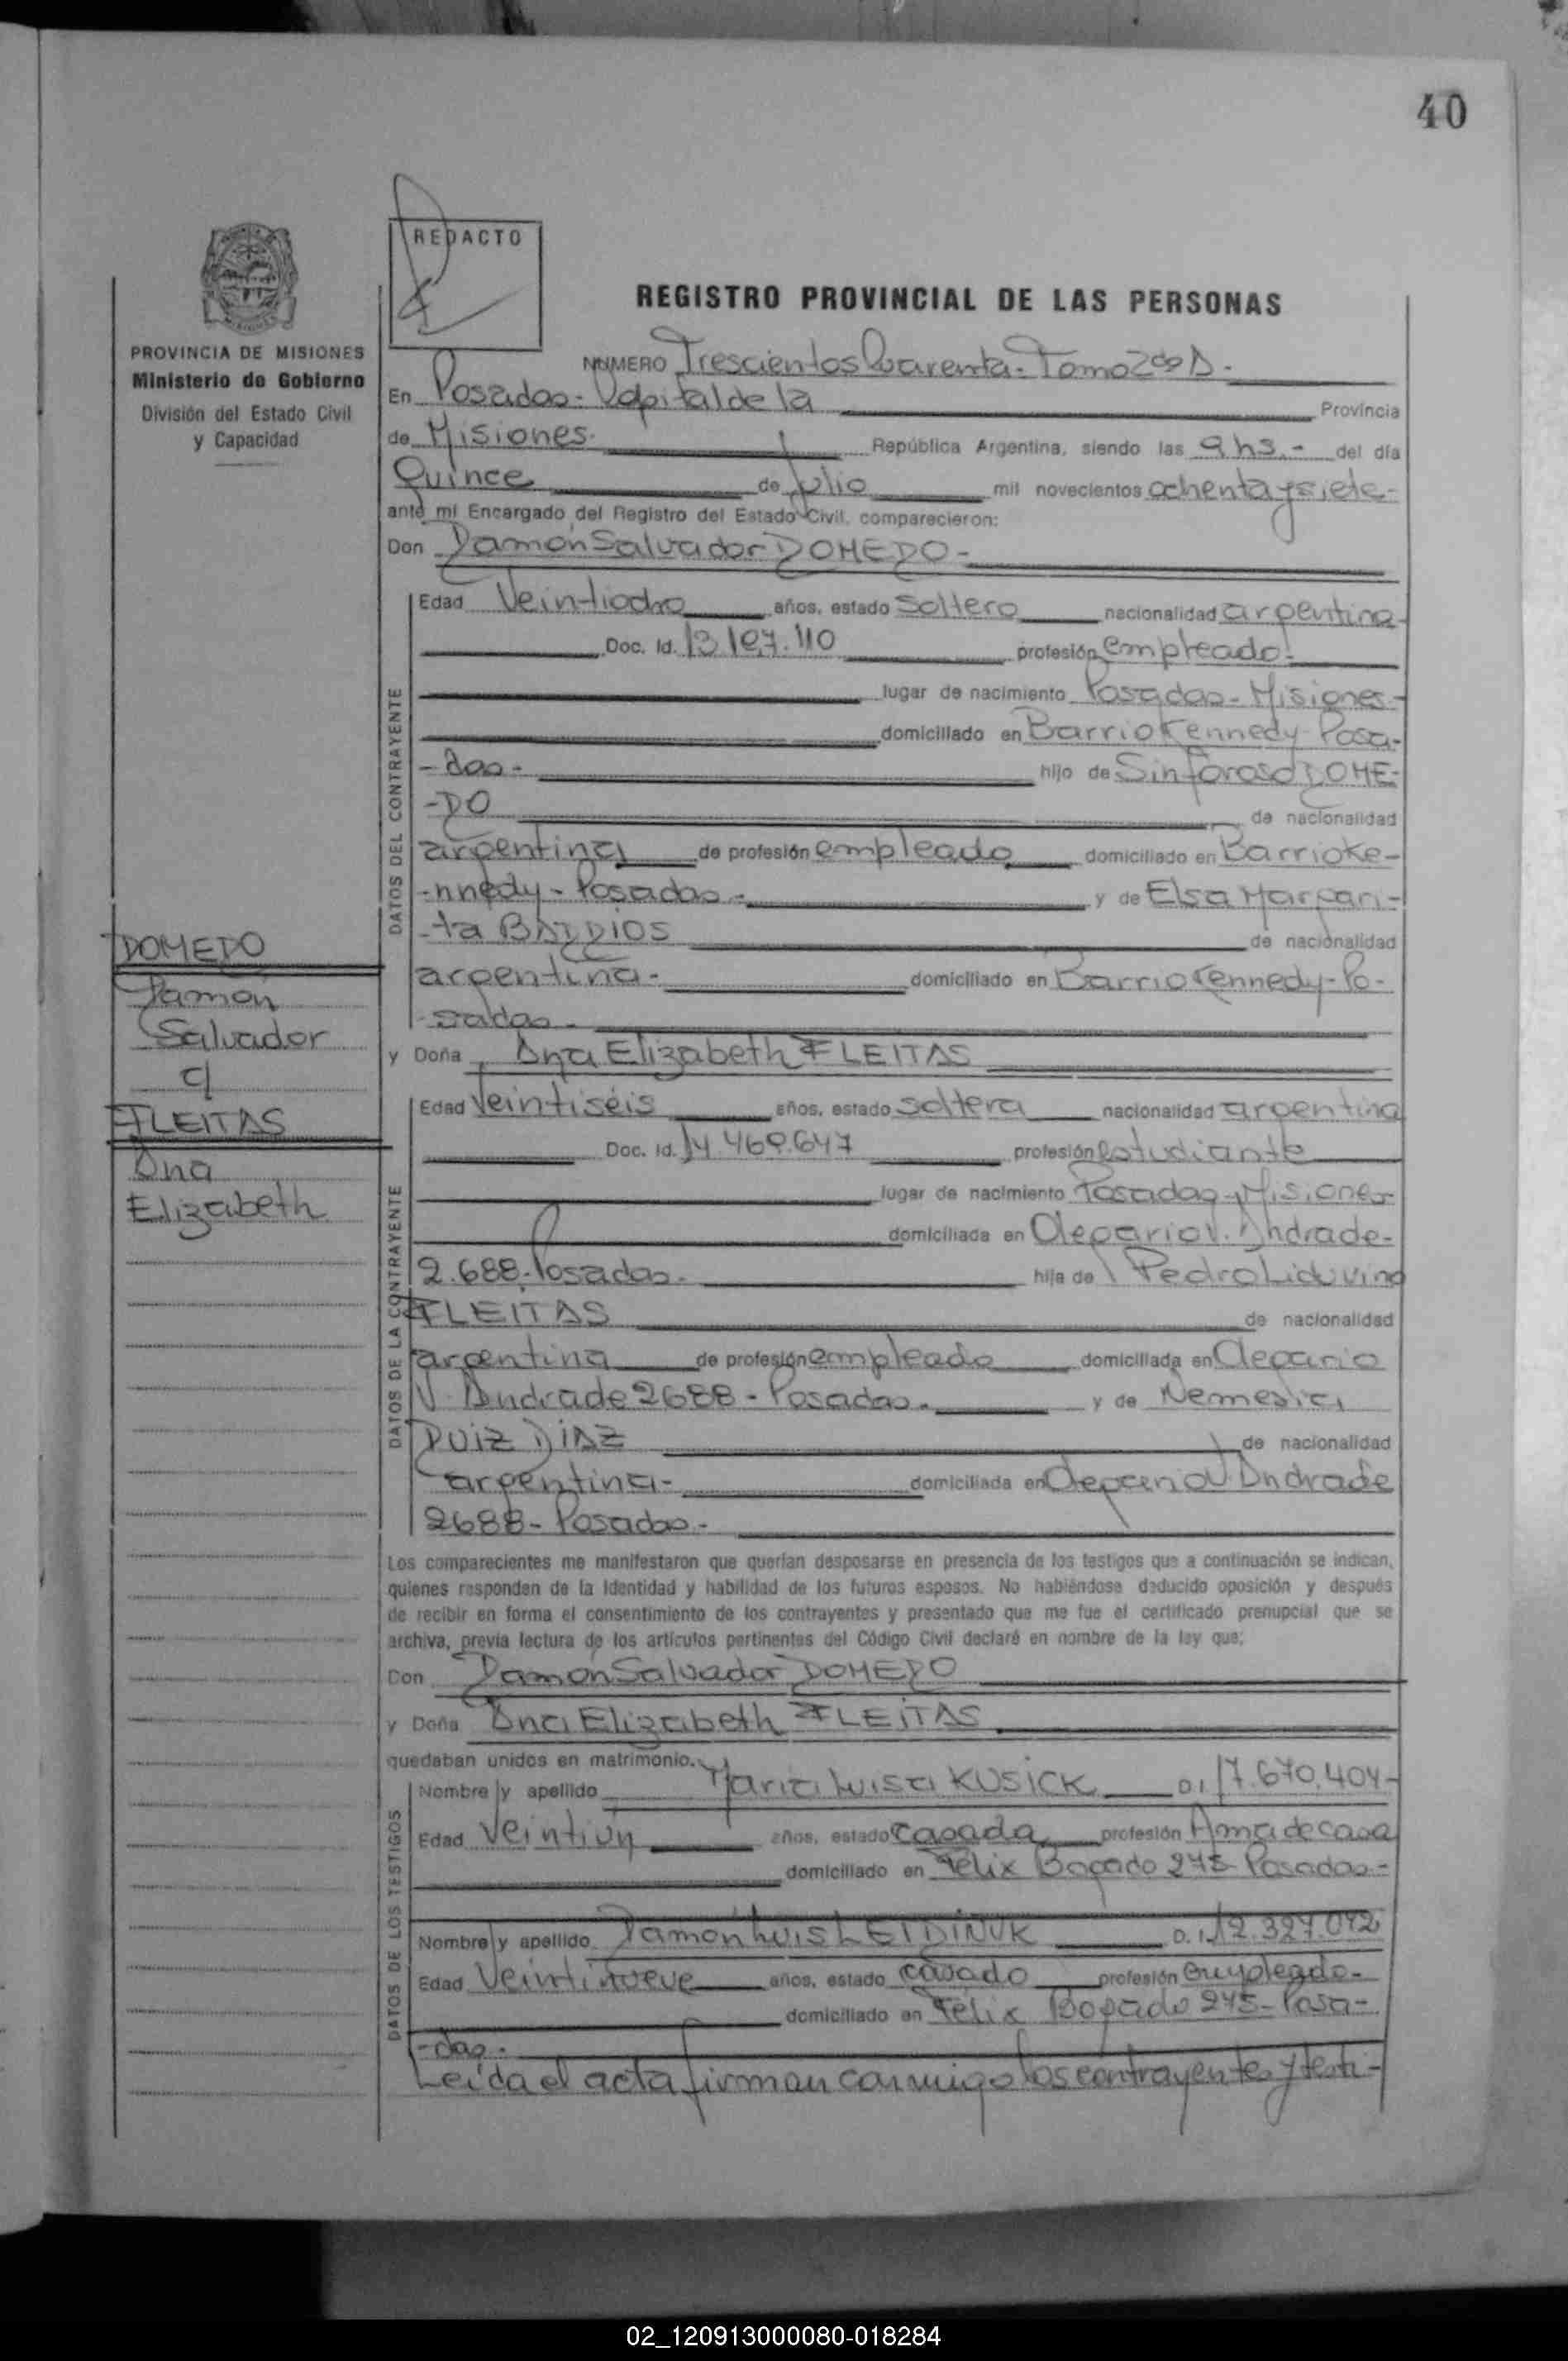 40
REDACTO
REGISTRO PROVINCIAL DE LAS PERSONAS
PROVINCIA DE MISIONES
Ministerio de Gobierno
División del Estado Civil
y Capacidad
NUMERO Trescientos Cuarenta - Tomo 2do A -
En Posadas - Capital de la Provincia
de Misiones República Argentina, siendo las 9 hs. - del día
Quince de Julio mil novecientos ochenta y siete -
ante mi Encargado del Registro del Estado Civil, comparecieron:
Don Ramon Salvador ROMERO -
DATOS DEL CONTRAYENTE
Edad Veintiocho años, estado soltero nacionalidad argentina
Doc. Id. 13.197.110 profesión empleado
lugar de nacimiento Posadas - Misiones -
domiciliado en Barrio Kennedy - Posa-
-das - hijo de Sinforoso ROME-
-RO de nacionalidad
argentina de profesión empleado domiciliado en Barrio Ke-
-nnedy - Posadas - y de Elsa Margari-
-ta BARRIOS de nacionalidad
argentina - domiciliado en Barrio Kennedy - Po-
-sadas -
ROMERO
Ramon
Salvador
c/
FLEITAS
Ana
Elizabeth
y Doña Ana Elizabeth FLEITAS
DATOS DE LA CONTRAYENTE
Edad Veintiséis años, estado soltera nacionalidad argentina
Doc. Id. 14.469.647 profesión estudiante
lugar de nacimiento Posadas - Misiones
domiciliada en Olegario V. Andrade -
2.688 - Posadas - hija de Pedro Liduvino
FLEITAS de nacionalidad
argentina de profesión empleado domiciliada en Olegario
V. Andrade 2688 - Posadas - y de Nemesia
RUIZ DIAZ de nacionalidad
argentina - domiciliada en Olegario V. Andrade
2688 - Posadas -
Los comparecientes me manifestaron que querían desposarse en presencia de los testigos que a continuación se indican,
quienes responden de la identidad y habilidad de los futuros esposos. No habiéndose deducido oposición y después
de recibir en forma el consentimiento de los contrayentes y presentado que me fue el certificado prenupcial que se
archiva, previa lectura de los artículos pertinentes del Código Civil declaré en nombre de la ley que:
Don Ramon Salvador ROMERO
y Doña Ana Elizabeth FLEITAS
quedaban unidos en matrimonio.
DATOS DE LOS TESTIGOS
Nombre y apellido Maria Luisa KUSICK D.I. 17.670.404 -
Edad Veintiun años, estado casada profesión Ama de casa
domiciliado en Felix Bogado 275 - Posadas -
Nombre y apellido Ramon Luis D.I. 12.327.072
Edad Veintinueve años, estado casado profesión empleado -
domiciliado en Félix Bogado 275 - Posa-
-das -
Leida el acta firman conmigo los contrayentes y testi-
02_120913000080-018284